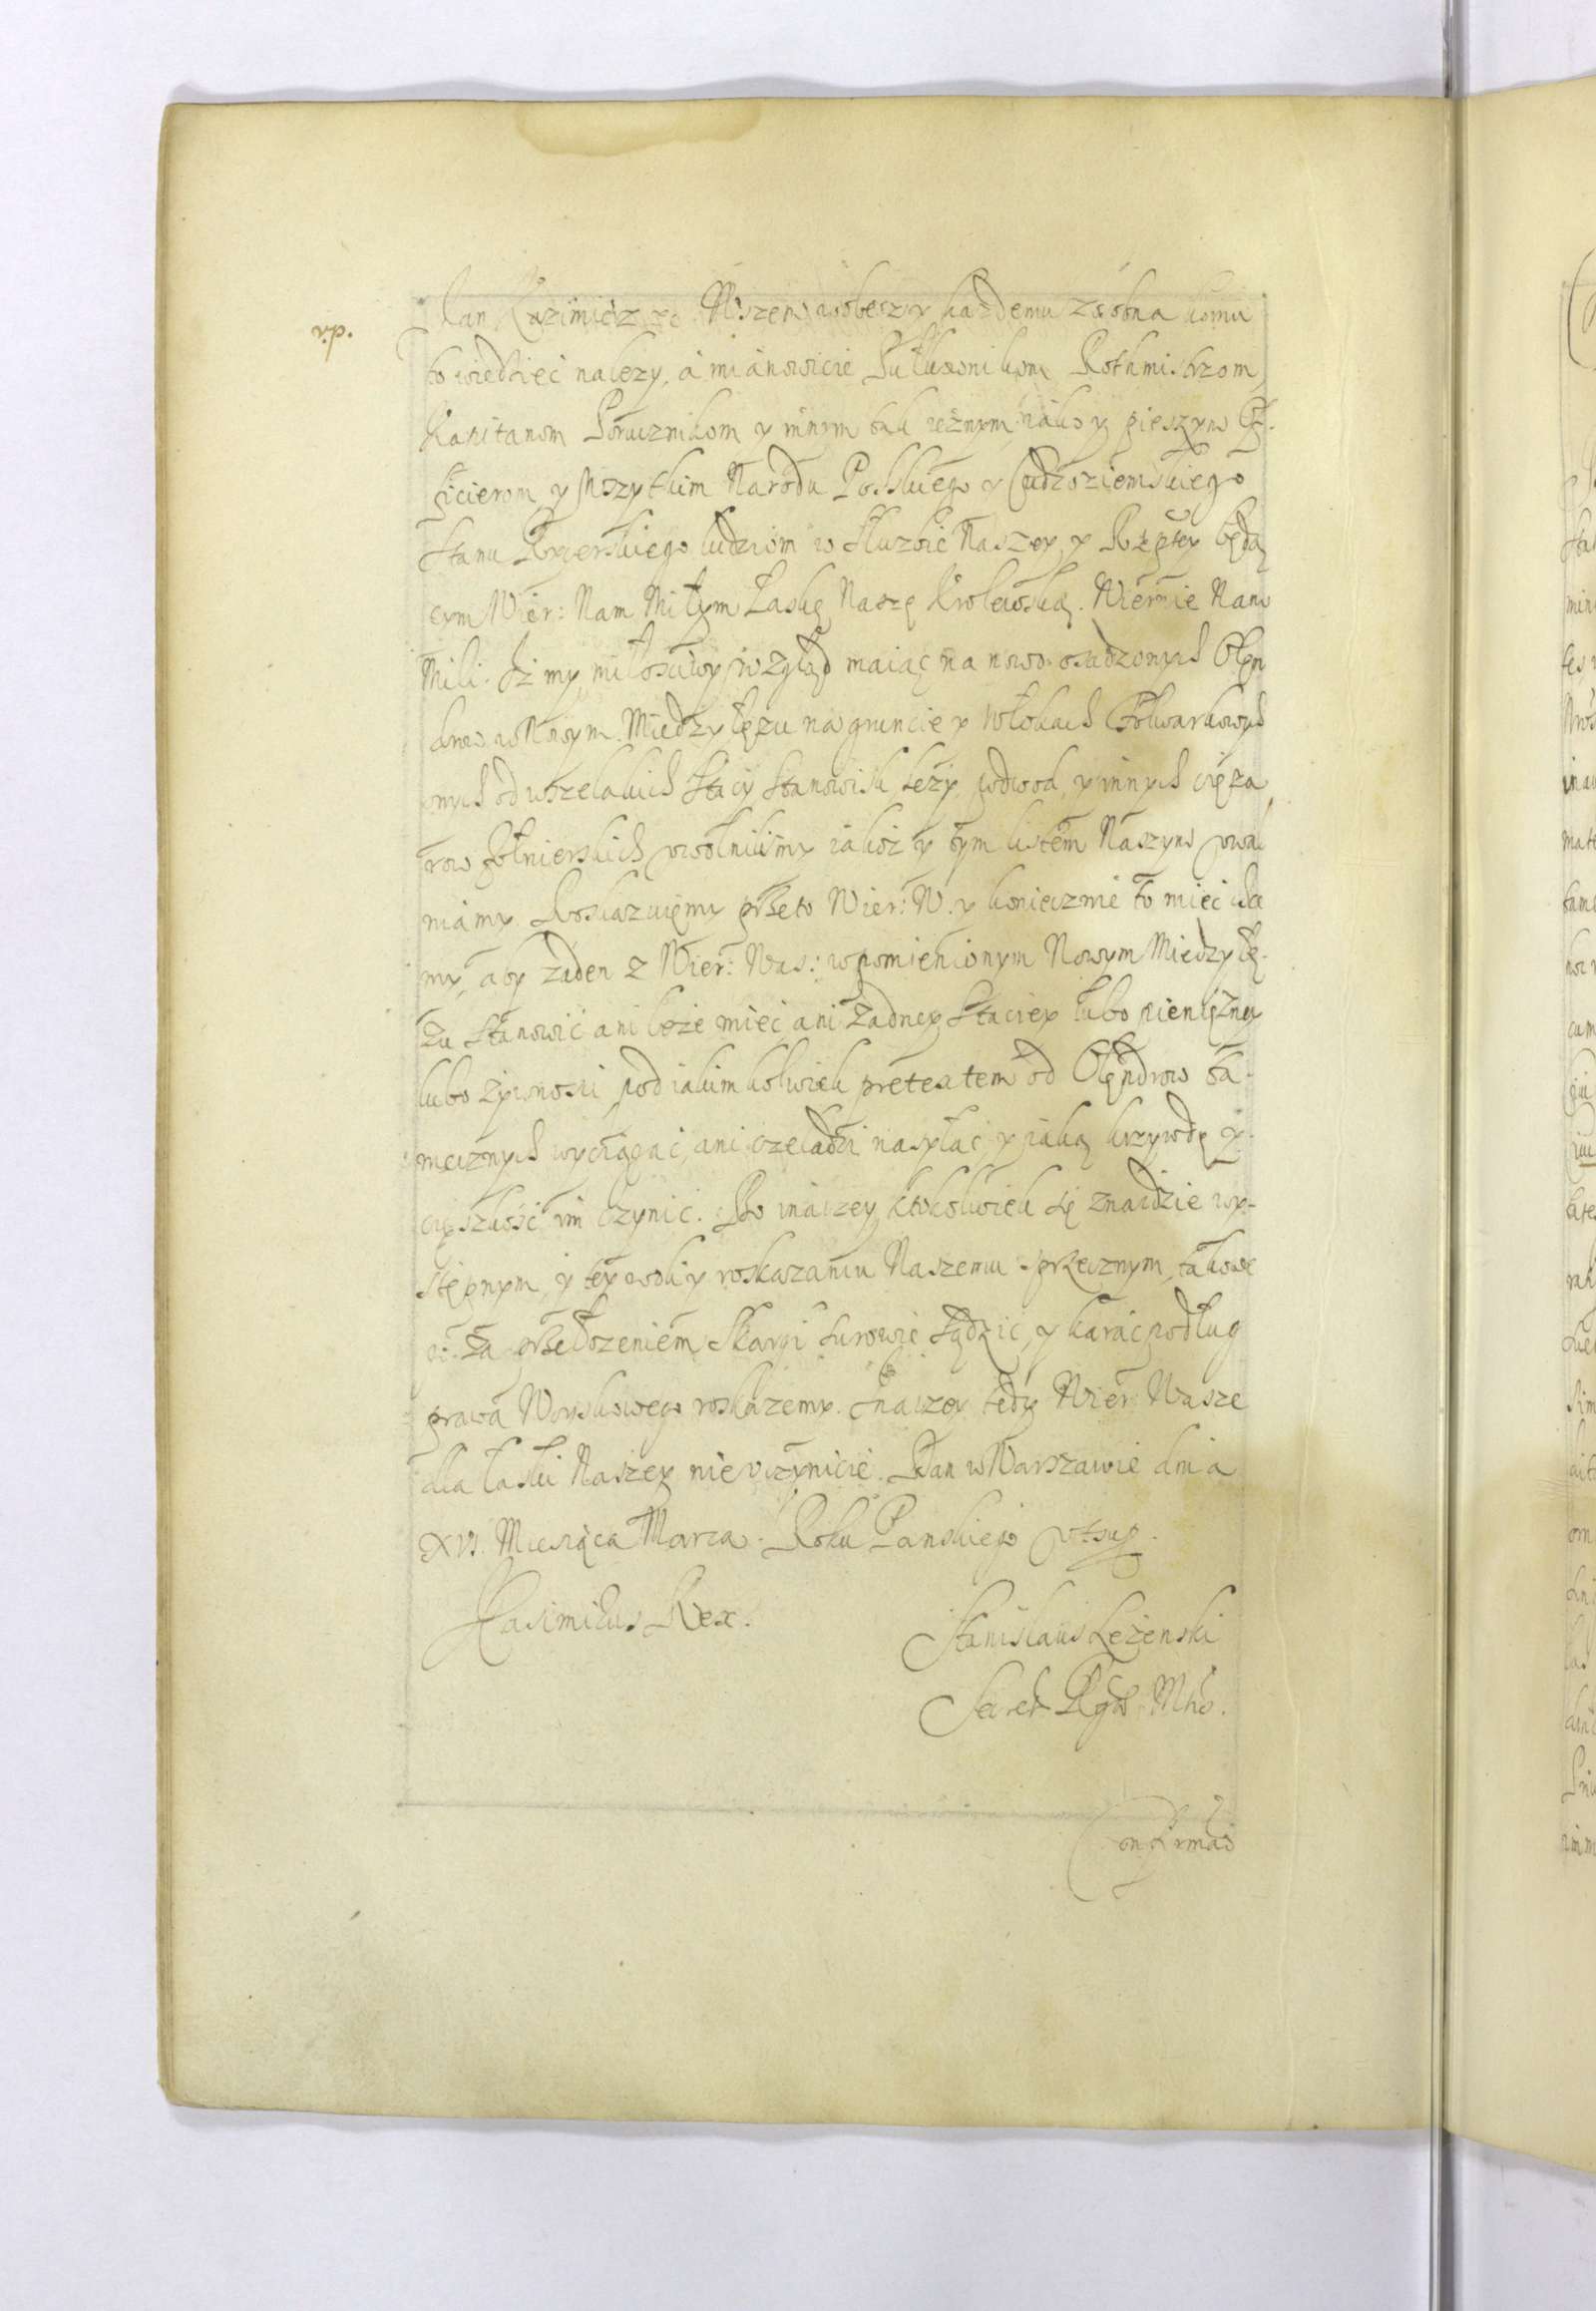 v.p.
Jan Kazimierz etc. Wszem wobesz y kazdemu zosobna komu
to wiedziec nalezy, a mianowicie Pułkownikom Rothmistrzom,
Kapitanom Porucznikom y innym tak ieznym iako y pieszym Of-
ficierom y Wszytkim Narodu Polskiego y Cudzoziemskiego
stanu Rycerskiego ludziom w służbie Naszey y Rzeptey będą
cym Wier: Nam Miłym Łaskę Naszę Krolewską. Wiernie Nam
Mili. Iz my miłosciwy wzgląd maiąc na nowo osadzonych Olęn
drow w Nowym Miedzyłężu na gruncie y Włokach Folwarkowych
onych od wszelakich Stacy Stanowisk leży podwod, y innych cięża
row żołnierskich uwolnilismy iakoż y tym listem Naszym uwal
niamy. Roskazuięmy przeto Wier: W. y koniecznie to miec chce
my, aby żaden z Wier: Was: wpomienionym Nowym Miedzyłę-
żu stanowić ani leże miec, ani żadney Staciey lubo pieniężney
lubo żywnosci pod iakimkolwiek pretextem od Olędrow ta-
mecznych wyciągac, ani czeladzi nasyłac, y iaką krzywdę y
cięszkość im czynic. Bo inaczey ktokolwiek się znaidzie wy-
stępnym, y tey woli y roskazaniu Naszemu sprzecznym, takowe
go za przełożeniem Skargi surowie sądzić, y karac podług
prawa Woyskowego roskażemy. Inaczey tedy Wier: Wasze
dla łaski Naszey nie uczynicie. Dan w Warszawie dnia
XVI. Miesiąca Marca. Roku Panskiego utsup.
Casimirus Rex.
Stanislaus Leżenski
Secret. Rgae Mtis.
Confirmao